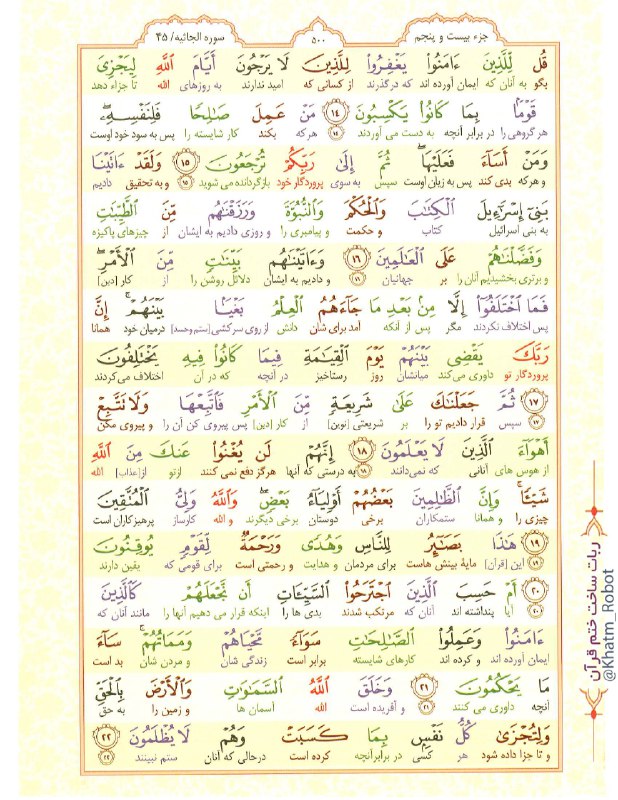 جزء بیست و پنجم
۵۰۰
سوره الجاثیه/ ۴۵
قُل لِّلَّذِينَ ءَامَنُوا۟ يَغْفِرُوا۟ لِلَّذِينَ لَا يَرْجُونَ أَيَّامَ ٱللَّهِ لِيَجْزِىَ
بگو به آنان که ایمان آورده اند که درگذرند از کسانی که امید ندارند به روزهای الله تا جزاء دهد
قَوْمًۢا بِمَا كَانُوا۟ يَكْسِبُونَ ١٤ مَنْ عَمِلَ صَٰلِحًا فَلِنَفْسِهِۦ
هر گروهی را در برابر آنچه به دست می آوردند ۱۴ هرکه بکند کار شایسته را پس به سود خود اوست
وَمَنْ أَسَآءَ فَعَلَيْهَا ثُمَّ إِلَىٰ رَبِّكُمْ تُرْجَعُونَ ١٥ وَلَقَدْ ءَاتَيْنَا
و هرکه بدی کند پس به زیان اوست سپس به سوی پروردگار خود بازگردانده می شوید ۱۵ و به تحقیق دادیم
بَنِىٓ إِسْرَٰٓءِيلَ ٱلْكِتَٰبَ وَٱلْحُكْمَ وَٱلنُّبُوَّةَ وَرَزَقْنَٰهُم مِّنَ ٱلطَّيِّبَٰتِ
به بنی اسرائیل کتاب و حکمت و پیامبری را و روزی دادیم به ایشان از چیزهای پاکیزه
وَفَضَّلْنَٰهُمْ عَلَى ٱلْعَٰلَمِينَ ١٦ وَءَاتَيْنَٰهُم بَيِّنَٰتٍ مِّنَ ٱلْأَمْرِ
و برتری بخشیدیم آنان را بر جهانیان ۱۶ و دادیم به ایشان دلائل روشن را از کار [دین]
فَمَا ٱخْتَلَفُوٓا۟ إِلَّا مِنۢ بَعْدِ مَا جَآءَهُمُ ٱلْعِلْمُ بَغْيًۢا بَيْنَهُمْ إِنَّ
پس اختلاف نکردند مگر پس از آنکه آمد برای شان دانش از روی سرکشی [ستم وحسد] درمیان خود همانا
رَبَّكَ يَقْضِى بَيْنَهُمْ يَوْمَ ٱلْقِيَٰمَةِ فِيمَا كَانُوا۟ فِيهِ يَخْتَلِفُونَ
پروردگار تو داوری می کند میانشان روز رستاخیز در آنچه که در آن اختلاف می کردند
١٧ ثُمَّ جَعَلْنَٰكَ عَلَىٰ شَرِيعَةٍ مِّنَ ٱلْأَمْرِ فَٱتَّبِعْهَا وَلَا تَتَّبِعْ
۱۷ سپس قرار دادیم تو را بر شریعتی [نوین] از کار [دین] پس پیروی کن آن را و پیروی مکن
أَهْوَآءَ ٱلَّذِينَ لَا يَعْلَمُونَ ١٨ إِنَّهُمْ لَن يُغْنُوا۟ عَنكَ مِنَ ٱللَّهِ
از هوس های آنانی که نمی‌دانند ۱۸ به درستی که آنها هرگز دفع نمی کنند ازتو از [عذاب] الله
شَيْـًٔا وَإِنَّ ٱلظَّٰلِمِينَ بَعْضُهُمْ أَوْلِيَآءُ بَعْضٍ وَٱللَّهُ وَلِىُّ ٱلْمُتَّقِينَ
چیزی را و همانا ستمکاران برخی دوستان برخی دیگرند و الله کارساز پرهیزکاران است
١٩ هَٰذَا بَصَٰٓئِرُ لِلنَّاسِ وَهُدًى وَرَحْمَةٌ لِّقَوْمٍ يُوقِنُونَ
۱۹ این [قرآن] مایهٔ بینش هاست برای مردمان و هدایت و رحمتی است برای قومی که یقین دارند
٢٠ أَمْ حَسِبَ ٱلَّذِينَ ٱجْتَرَحُوا۟ ٱلسَّيِّـَٔاتِ أَن نَّجْعَلَهُمْ كَٱلَّذِينَ
۲۰ آیا پنداشته اند آنان که مرتکب شدند بدی ها را اینکه قرار می دهیم آنها را مانند آنان که
ءَامَنُوا۟ وَعَمِلُوا۟ ٱلصَّٰلِحَٰتِ سَوَآءً مَّحْيَاهُمْ وَمَمَاتُهُمْ سَآءَ
ایمان آورده اند و کرده اند کارهای شایسته برابر است زندگی شان و مردن شان بد است
مَا يَحْكُمُونَ ٢١ وَخَلَقَ ٱللَّهُ ٱلسَّمَٰوَٰتِ وَٱلْأَرْضَ بِٱلْحَقِّ
آنچه داوری می کنند ۲۱ و آفریده است الله آسمان ها و زمین را به حق
وَلِتُجْزَىٰ كُلُّ نَفْسٍۭ بِمَا كَسَبَتْ وَهُمْ لَا يُظْلَمُونَ ٢٢
و تا جزا داده شود هر کسی در برابر آنچه کرده است درحالی که آنان ستم نبینند ۲۲
ربات ساخت ختم قرآن
@Khatm_Robot